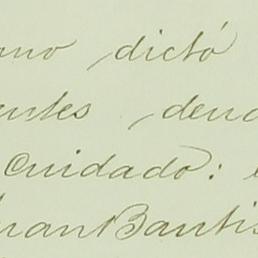 ano dictó
entes, deno
Cuidado: e
Juan Bautis